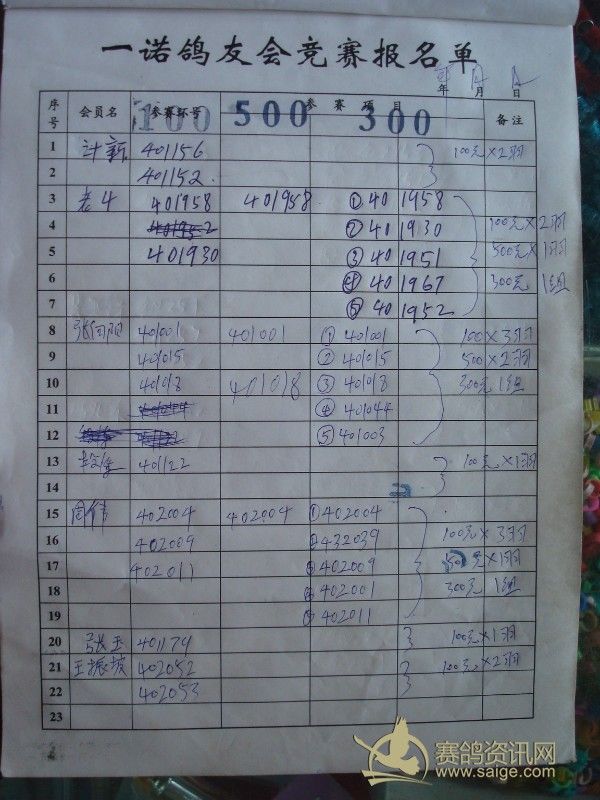 一诺鸽友会竞赛报名单
年 月 日
序号 会员名 参赛环号 参赛项目 备注
100 500 300
1 计新 401156 100元×2羽
2 401152
3 老牛 401958 401958 ①401958
4 401952 ②401930 100元×2羽
5 401930 ③401951 500元×1羽
6 ④401967 300元1组
7 ⑤401952
8 401001 401001 ①401001 100×3羽
9 401015 ②401015 500×2羽
10 401018 401018 ③401018 300元1组
11 ④401044
12 ⑤401003
13 401122 100元×1羽
14
15 周伟 402004 402004 ①402004
16 402009 ②432039 100元×3羽
17 402011 ③402009 500元×1羽
18 ④402001 300元1组
19 ⑤402011
20 张玉 401179 100元×1羽
21 王振坡 402052 100元×2羽
22 402053
23
赛鸽资讯网
www.saige.com